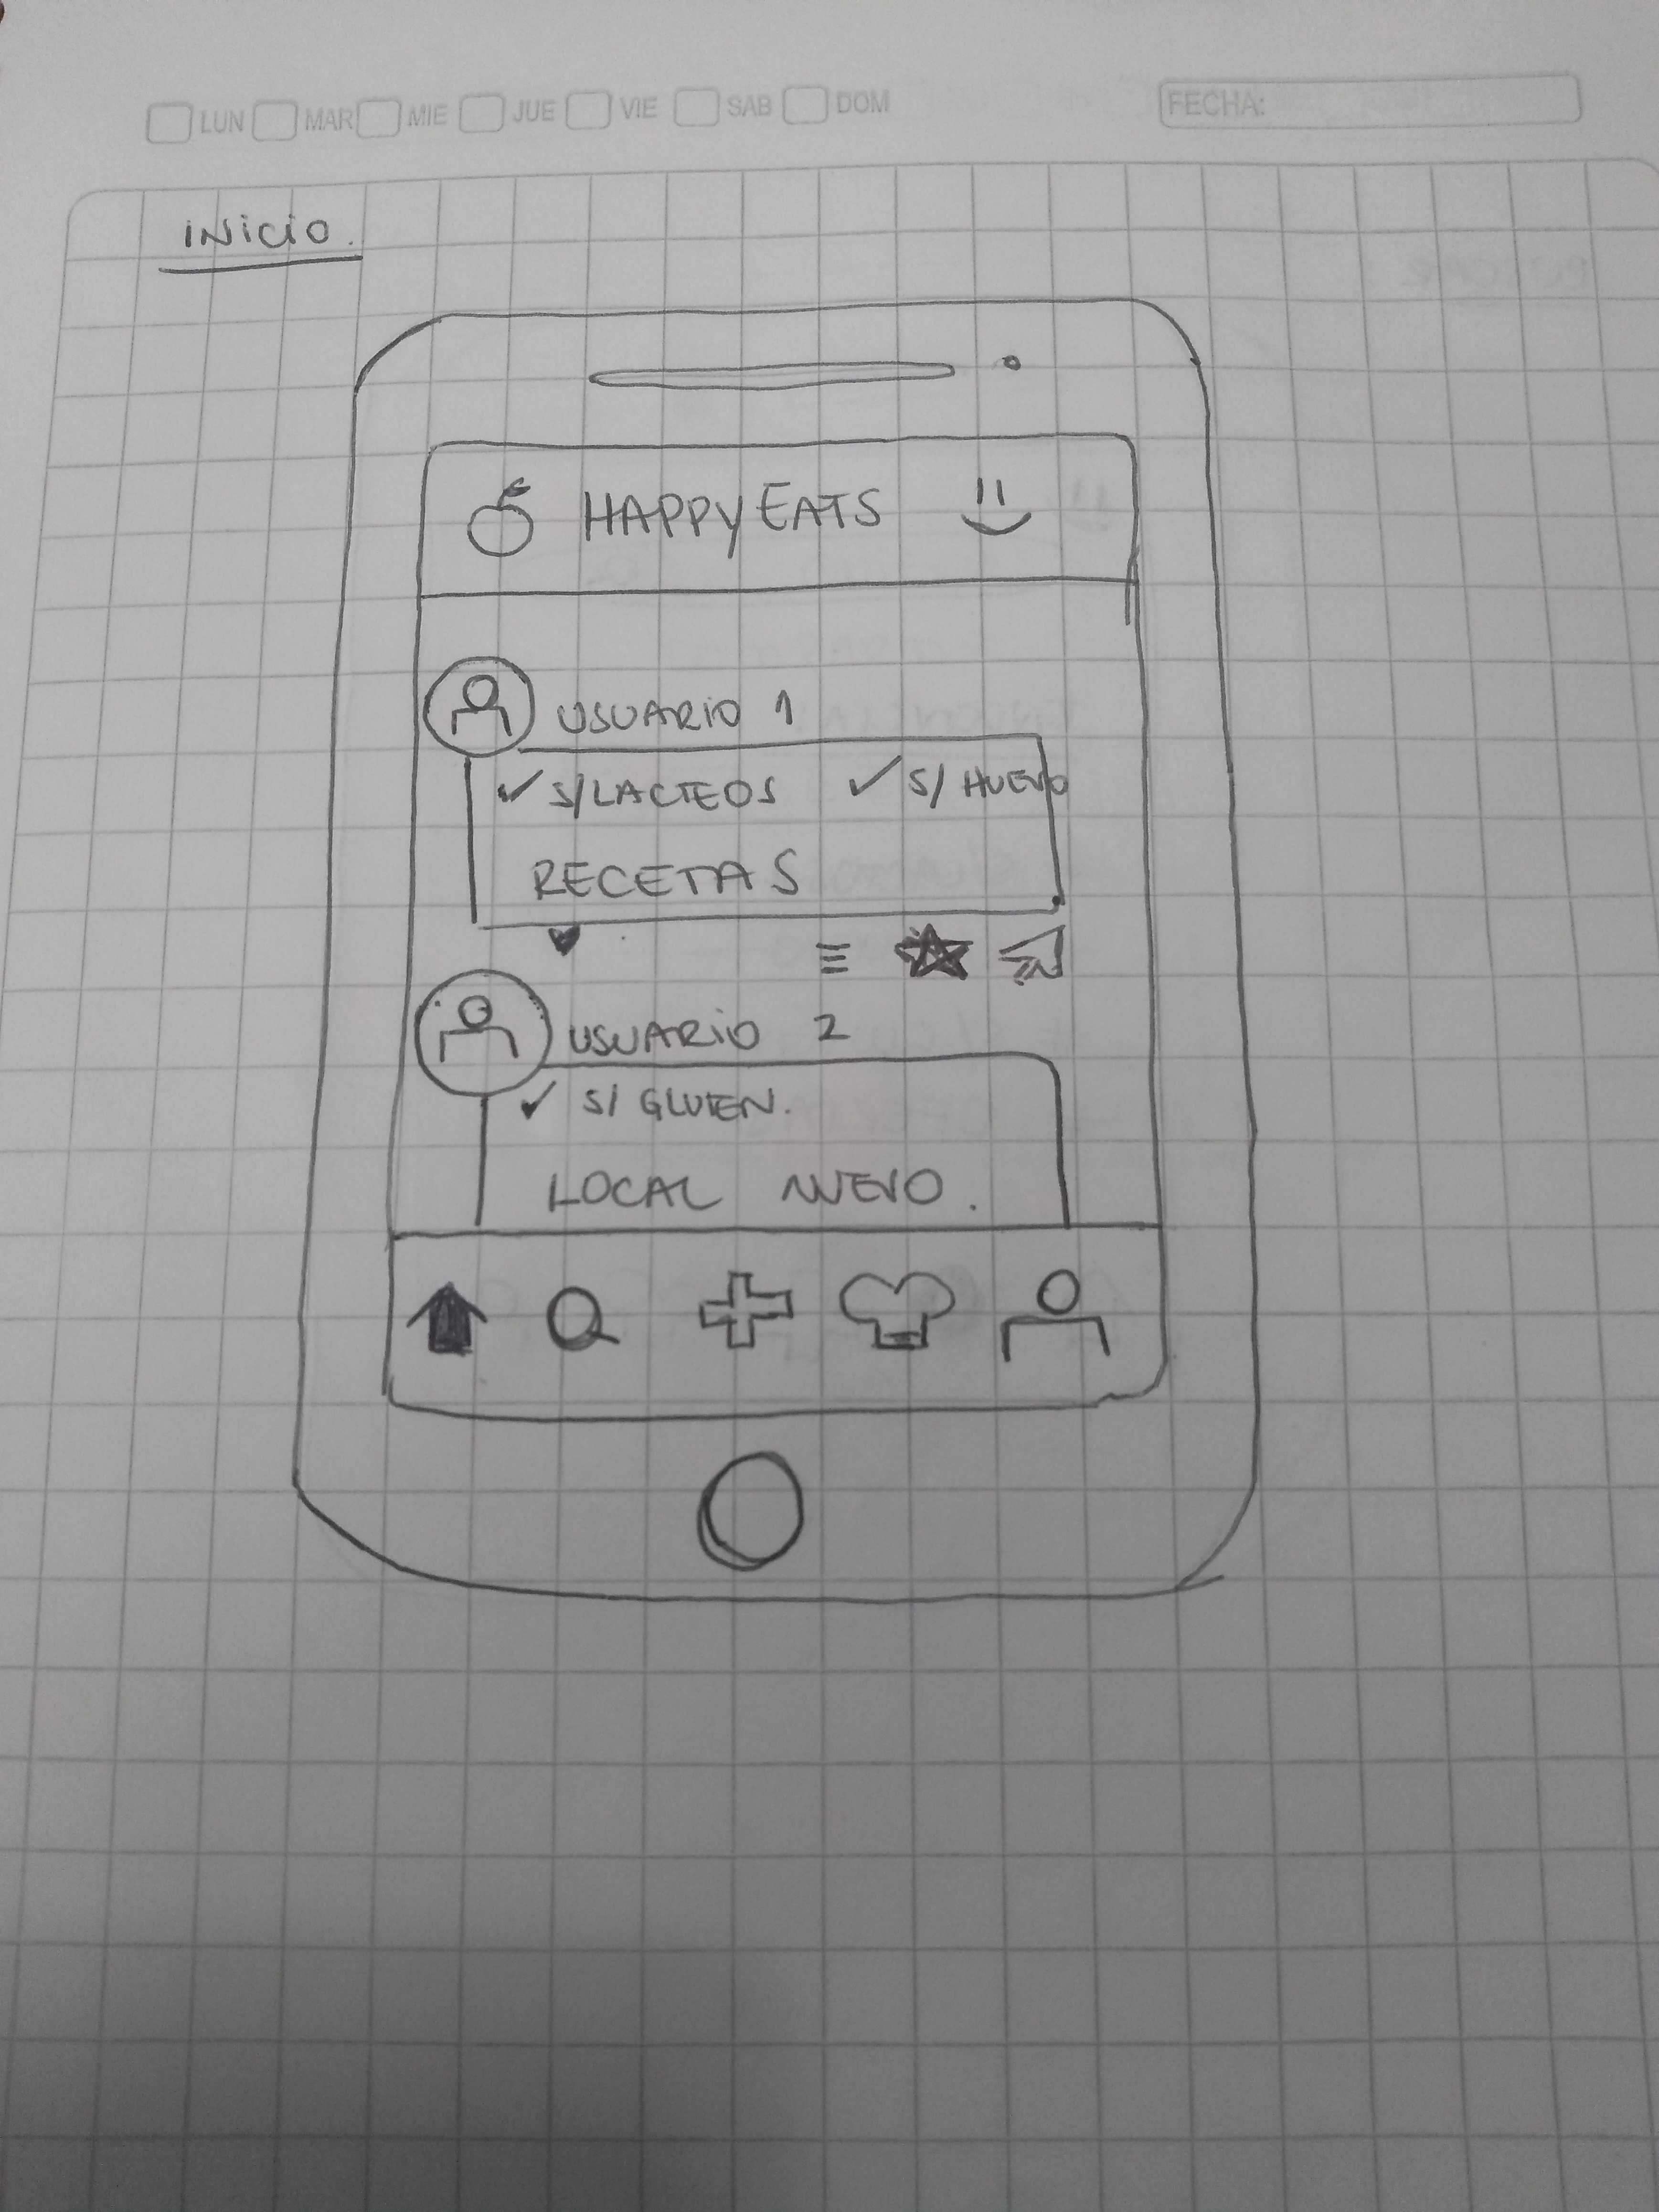 LUN MAR MIE JUE VIE SAB DOM FECHA:
INICIO.
HAPPY EATS
USUARIO 1
S/LACTEOS S/ HUEVO
RECETAS
USUARIO 2
S/ GLUTEN.
LOCAL NUEVO.